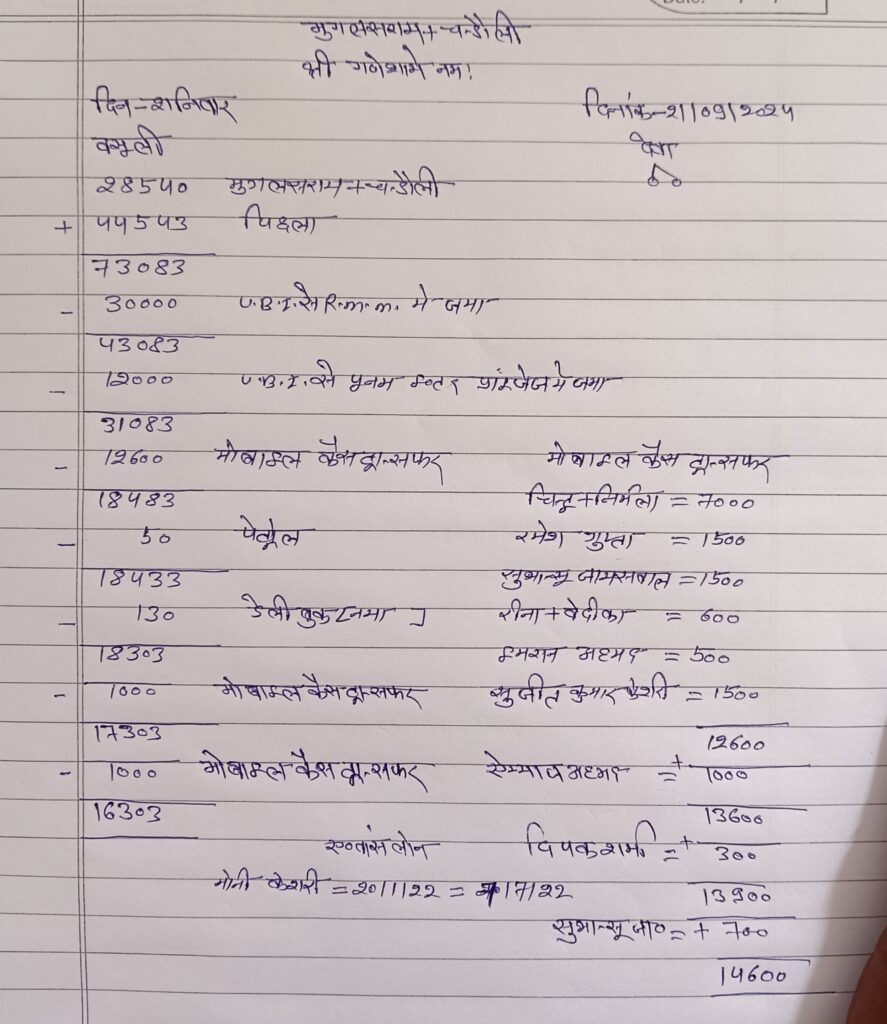 मुगलसराय + चन्दौली
श्री गणेशाये नमः
दिन = शनिवार दिनांक-21/09/2024
वसूली देवा
28540 मुगलसराय + चन्दौली
+ 44543 पिछला
73083
- 30000 U.B.I. से R.m.m. मे जमा
43083
- 12000 U.B.I. से पूनम इन्टर प्राईजेज मे जमा
31083
- 12600 मोबाइल कैस ट्रान्सफर मोबाइल कैस ट्रान्सफर
18483 चिन्टू + निर्मला = 7000
- 50 पेट्रोल रमेश गुप्ता = 1500
18433 सुभान्सू जायसवाल = 1500
- 130 डेली बुक [जमा] रीना + वेदीका = 600
18303 इमरान अहमद = 500
- 1000 मोबाइल कैस ट्रान्सफर सुजीत कुमार केशरी = 1500
17303 12600
- 1000 मोबाइल कैस ट्रान्सफर अहमद = + 1000
16303 13600
लोन दिपक शर्मा = + 300
मोनी केशरी = 20/1/22 = /7/22 13900
सुभान्सू जा० = + 700
14600